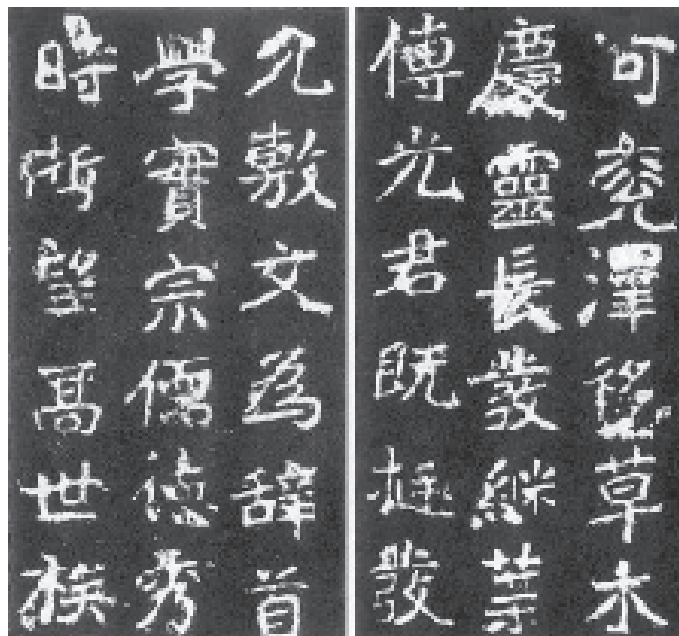 河兗澤草木
慶靈長發継葉
傳光君既挺發
允敷文為辭首
學實宗儒德秀
時哲望高世族